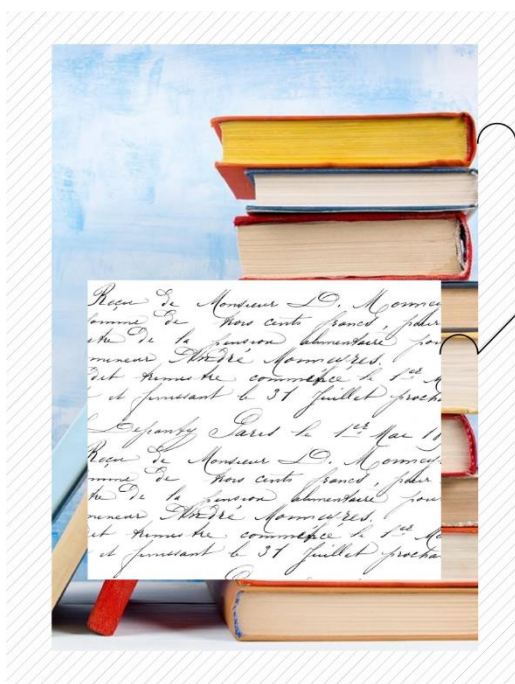 Reçu de Monsieur D. Monnier
somme de trois cents francs, pour
tre De la pension alimentaire pou
mineur André Monnieres,
dit trimestre commence le 1er M
et finissant le 31 Juillet procha
Paris le 1er Mai 19
Reçu de Monsieur D. Monnier
mme De trois cents francs, pour
tre De la pension alimentaire pou
mineur André Monnieres,
it trimestre commence le 1er Ma
et finissant le 31 Juillet procha